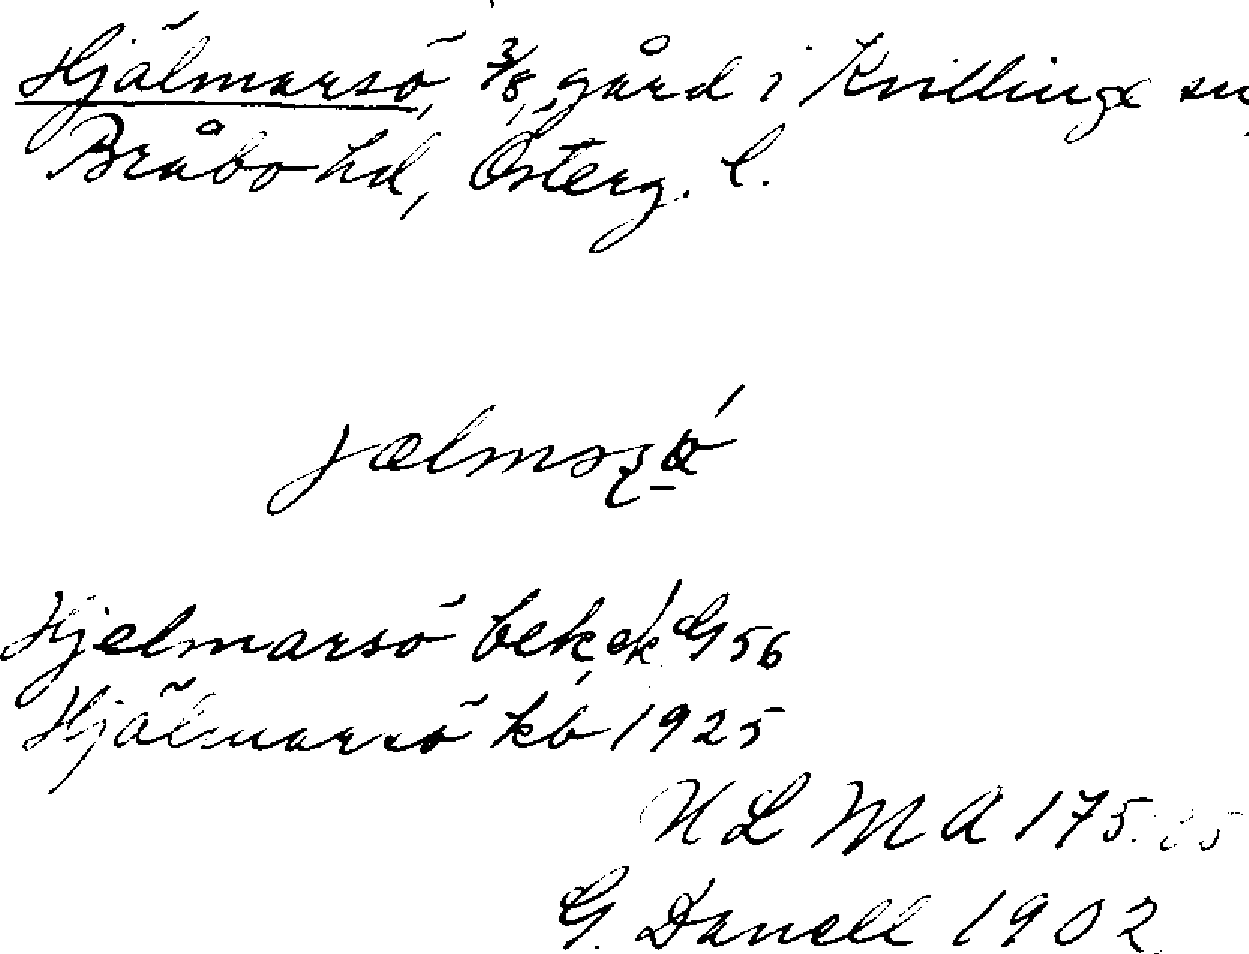 Hjälmarsö, 3/8, gård i Kvillinge sn
Bråbo hd, Österg. l.
Hjelmarsö bek. ek. G 56
Hjälmarsö kb 1925
ULMA 175:
G. Danell 1902